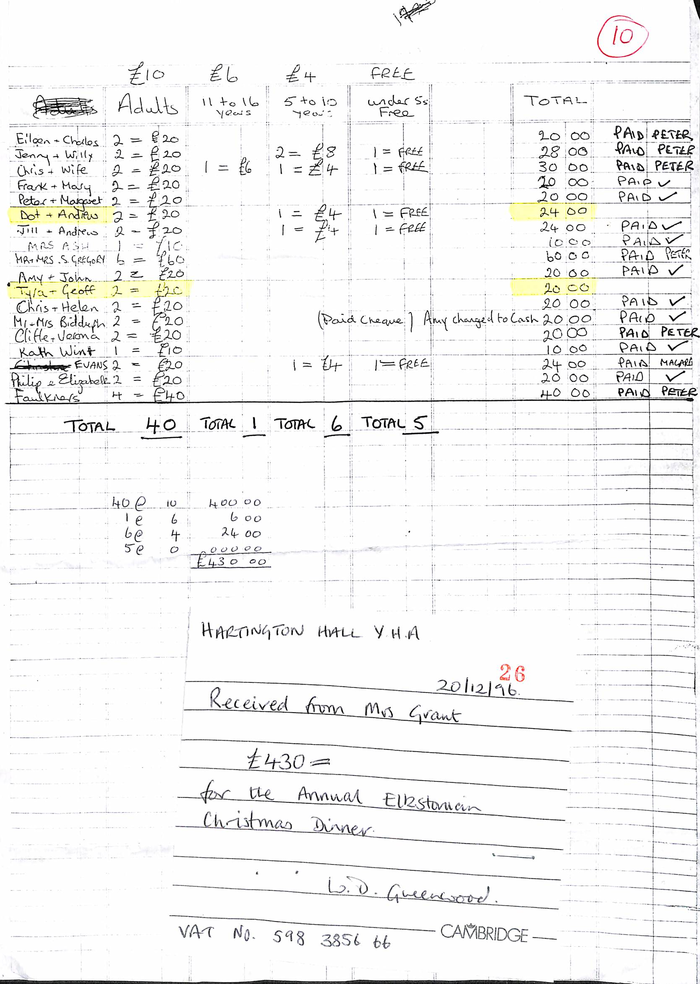 10
£10 £6 £4 FREE
Adults 11 to 16 years 5 to 10 years under 5s Free TOTAL
Eileen + Charles 2 = £20 20 00 PAID PETER
Jenny + Willy 2 = £20 2 = £8 1 = FREE 28 00 PAID PETER
Chris + Wife 2 = £20 1 = £6 1 = £4 1 = FREE 30 00 PAID PETER
Frank + Mary 2 = £20 20 00 PAID ✓
Peter + Margaret 2 = £20 20 00 PAID ✓
Dot + Andrew 2 = £20 1 = £4 1 = FREE 24 00
Jill + Andrew 2 = £20 1 = £4 1 = FREE 24 00 PAID ✓
MRS ASH 1 = £10 10 00 PAID ✓
MR + MRS S. GREGORY 6 = £60 60 00 PAID PETER
Amy + John 2 = £20 20 00 PAID ✓
+ Geoff 2 = £20 20 00
Chris + Helen 2 = £20 20 00 PAID ✓
Mr + Mrs 2 = £20 (Paid cheque) Amy changed to Cash 20 00 PAID ✓
+ Verona 2 = £20 20 00 PAID PETER
Kath Wint 1 = £10 10 00 PAID ✓
EVANS 2 = £20 1 = £4 1 = FREE 24 00 PAID
Philip & Elizabeth 2 = £20 20 00 PAID ✓
Faulkners 4 = £40 40 00 PAID PETER
TOTAL 40 TOTAL 1 TOTAL 6 TOTAL 5
40 @ 10 400 00
1 @ 6 6 00
6 @ 4 24 00
5 @ 0 000 00
£430 00
HARTINGTON HALL Y.H.A
26
20/12/96
Received from Mrs Grant
£430 =
for the Annual Elkstonian
Christmas Dinner.
W.D. Greenwood.
CAMBRIDGE
VAT No. 598 3856 66